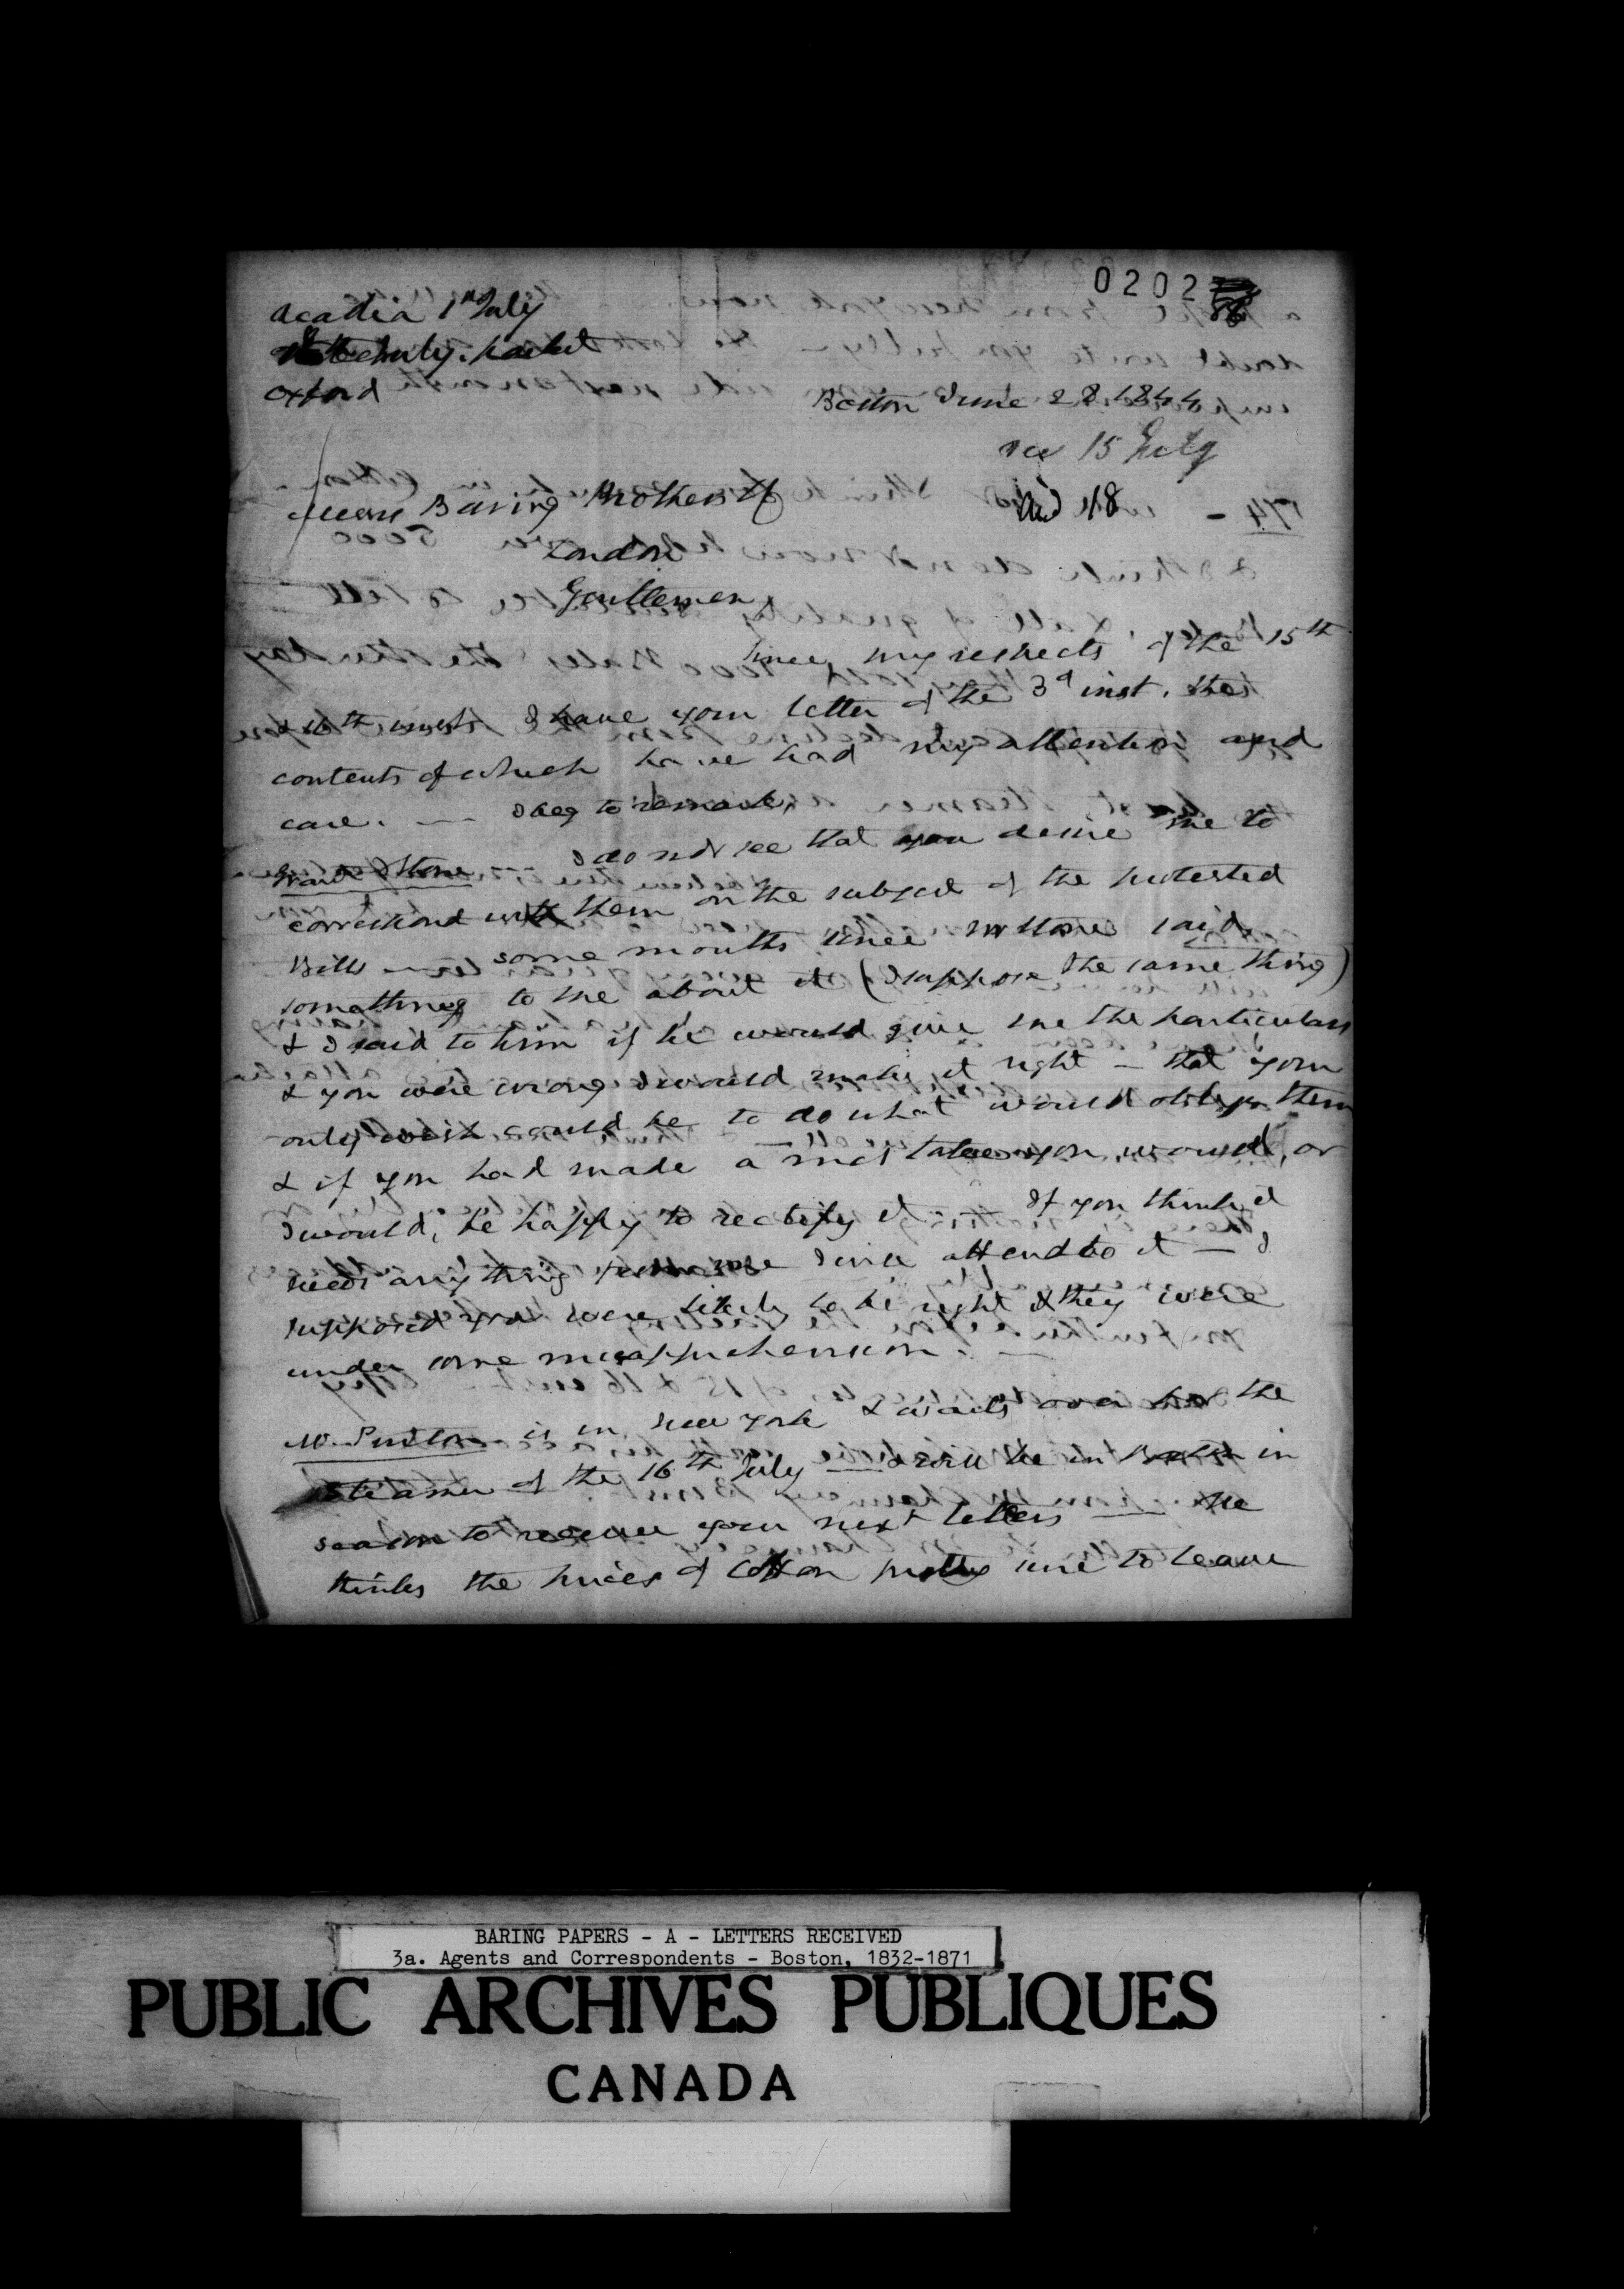 0202
58
Acadia 1st July
packet
Oxford
Boston June 28 1844
rec 15 July
And 18
Messrs Baring Brothers & Co
London
Gentlemen,
Since my respects of the 15th
& 16th inst. I have your letter of the 3d inst. the
contents of which have had my attention and
care. — I beg to remark,
I do not see that you desire me to
correspond with them on the subject of the protested
Bills — some months since Mr Stone said
something to me about it (I suppose the same thing)
& I said to him if he would give me the particulars
& you were wrong I would make it right — that your
only wish could be to do what would oblige them
& if you had made a mistake you would, or
I would, be happy to rectify it — If you think it
needs any thing from me I will attend to it — I
supposed you were likely to be right & they were
under some misapprehension. —
is in New York & awaits over for the
Steamer of the 16th July — & will be in Boston in
season to receive your next letters — He
thinks the prices of Cotton pretty sure to leave
BARING PAPERS - A - LETTERS RECEIVED
3a. Agents and Correspondents - Boston, 1832-1871
PUBLIC ARCHIVES PUBLIQUES
CANADA